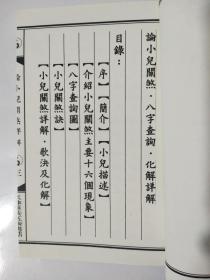 論小兒關煞·八字查詢·化解詳解
目錄：
【序】【簡介】【小兒描述】
【介紹小兒關煞主要十六個現象】
【八字查詢圖】
【小兒關煞訣】
【小兒關煞詳解·歌決及化解】
論小兒關煞詳解
三